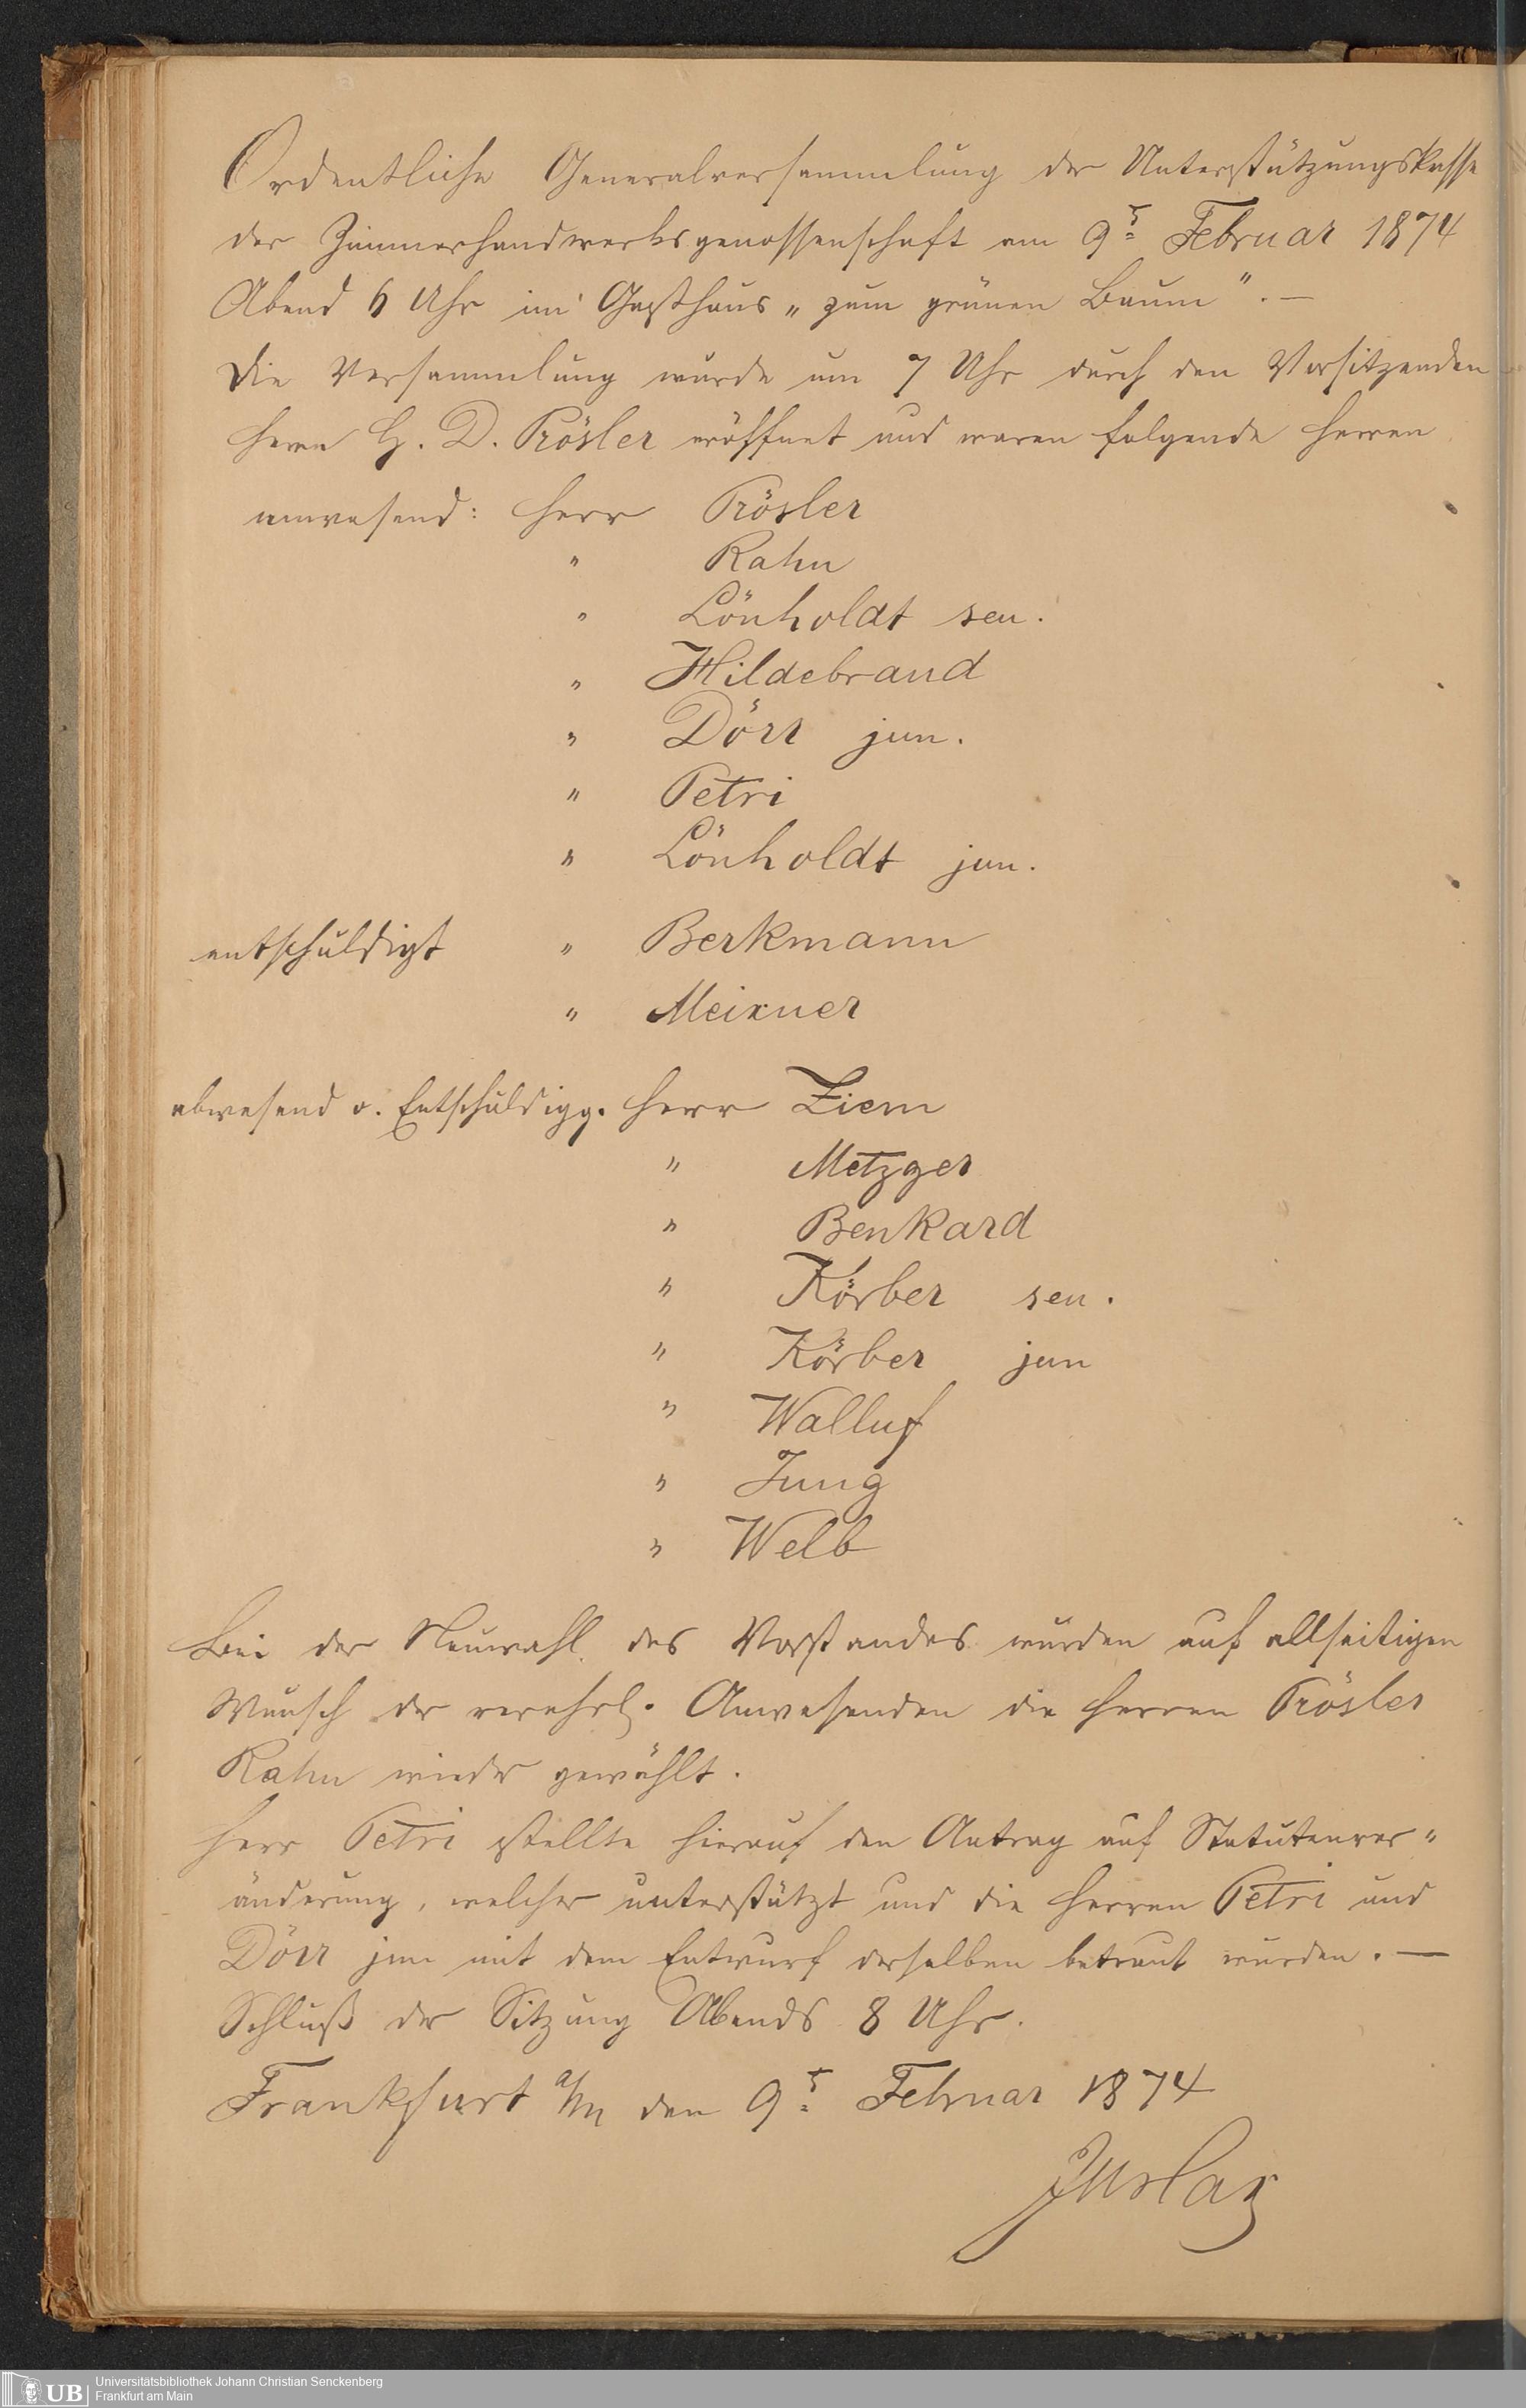 Ordentliche Generalversammlung der Unterstützungskasse
der Zimmerhandwerksgenossenschaft am 9t Februar 1874
Abend 6 Uhr im Gasthaus „zum grünen Baum". —
Die Versammlung wurde um 7 Uhr durch den Vorsitzenden
Herrn H. D. Prösler eröffnet und waren folgende Herren
anwesend: Herr Prösler
" Rahn
" Lönholdt sen.
" Hildebrand
" Dörr jun.
" Petri
" Lönholdt jun.
entschuldigt " Berkmann
" Meixner
abwesend o. Entschuldigg. Herr Ziem
" Metzger
" Benkard
" Körber sen.
" Körber jun
" Walluf
" Jung
" Welb
Bei der Neuwahl des Vorstandes wurden auf allseitigen
Wunsch der verehrl. Anwesenden die Herren Prösler
Rahn wieder gewählt.
Herr Petri stellte hierauf den Antrag auf Statutenver"
änderung, welcher unterstützt und die Herren Petri und
Dörr jun mit dem Entwurf derselben betraut wurden. —
Schluß der Sitzung Abends 8 Uhr.
Frankfurt a/M den 9t Februar 1874
UB Universitätsbibliothek Johann Christian Senckenberg
Frankfurt am Main